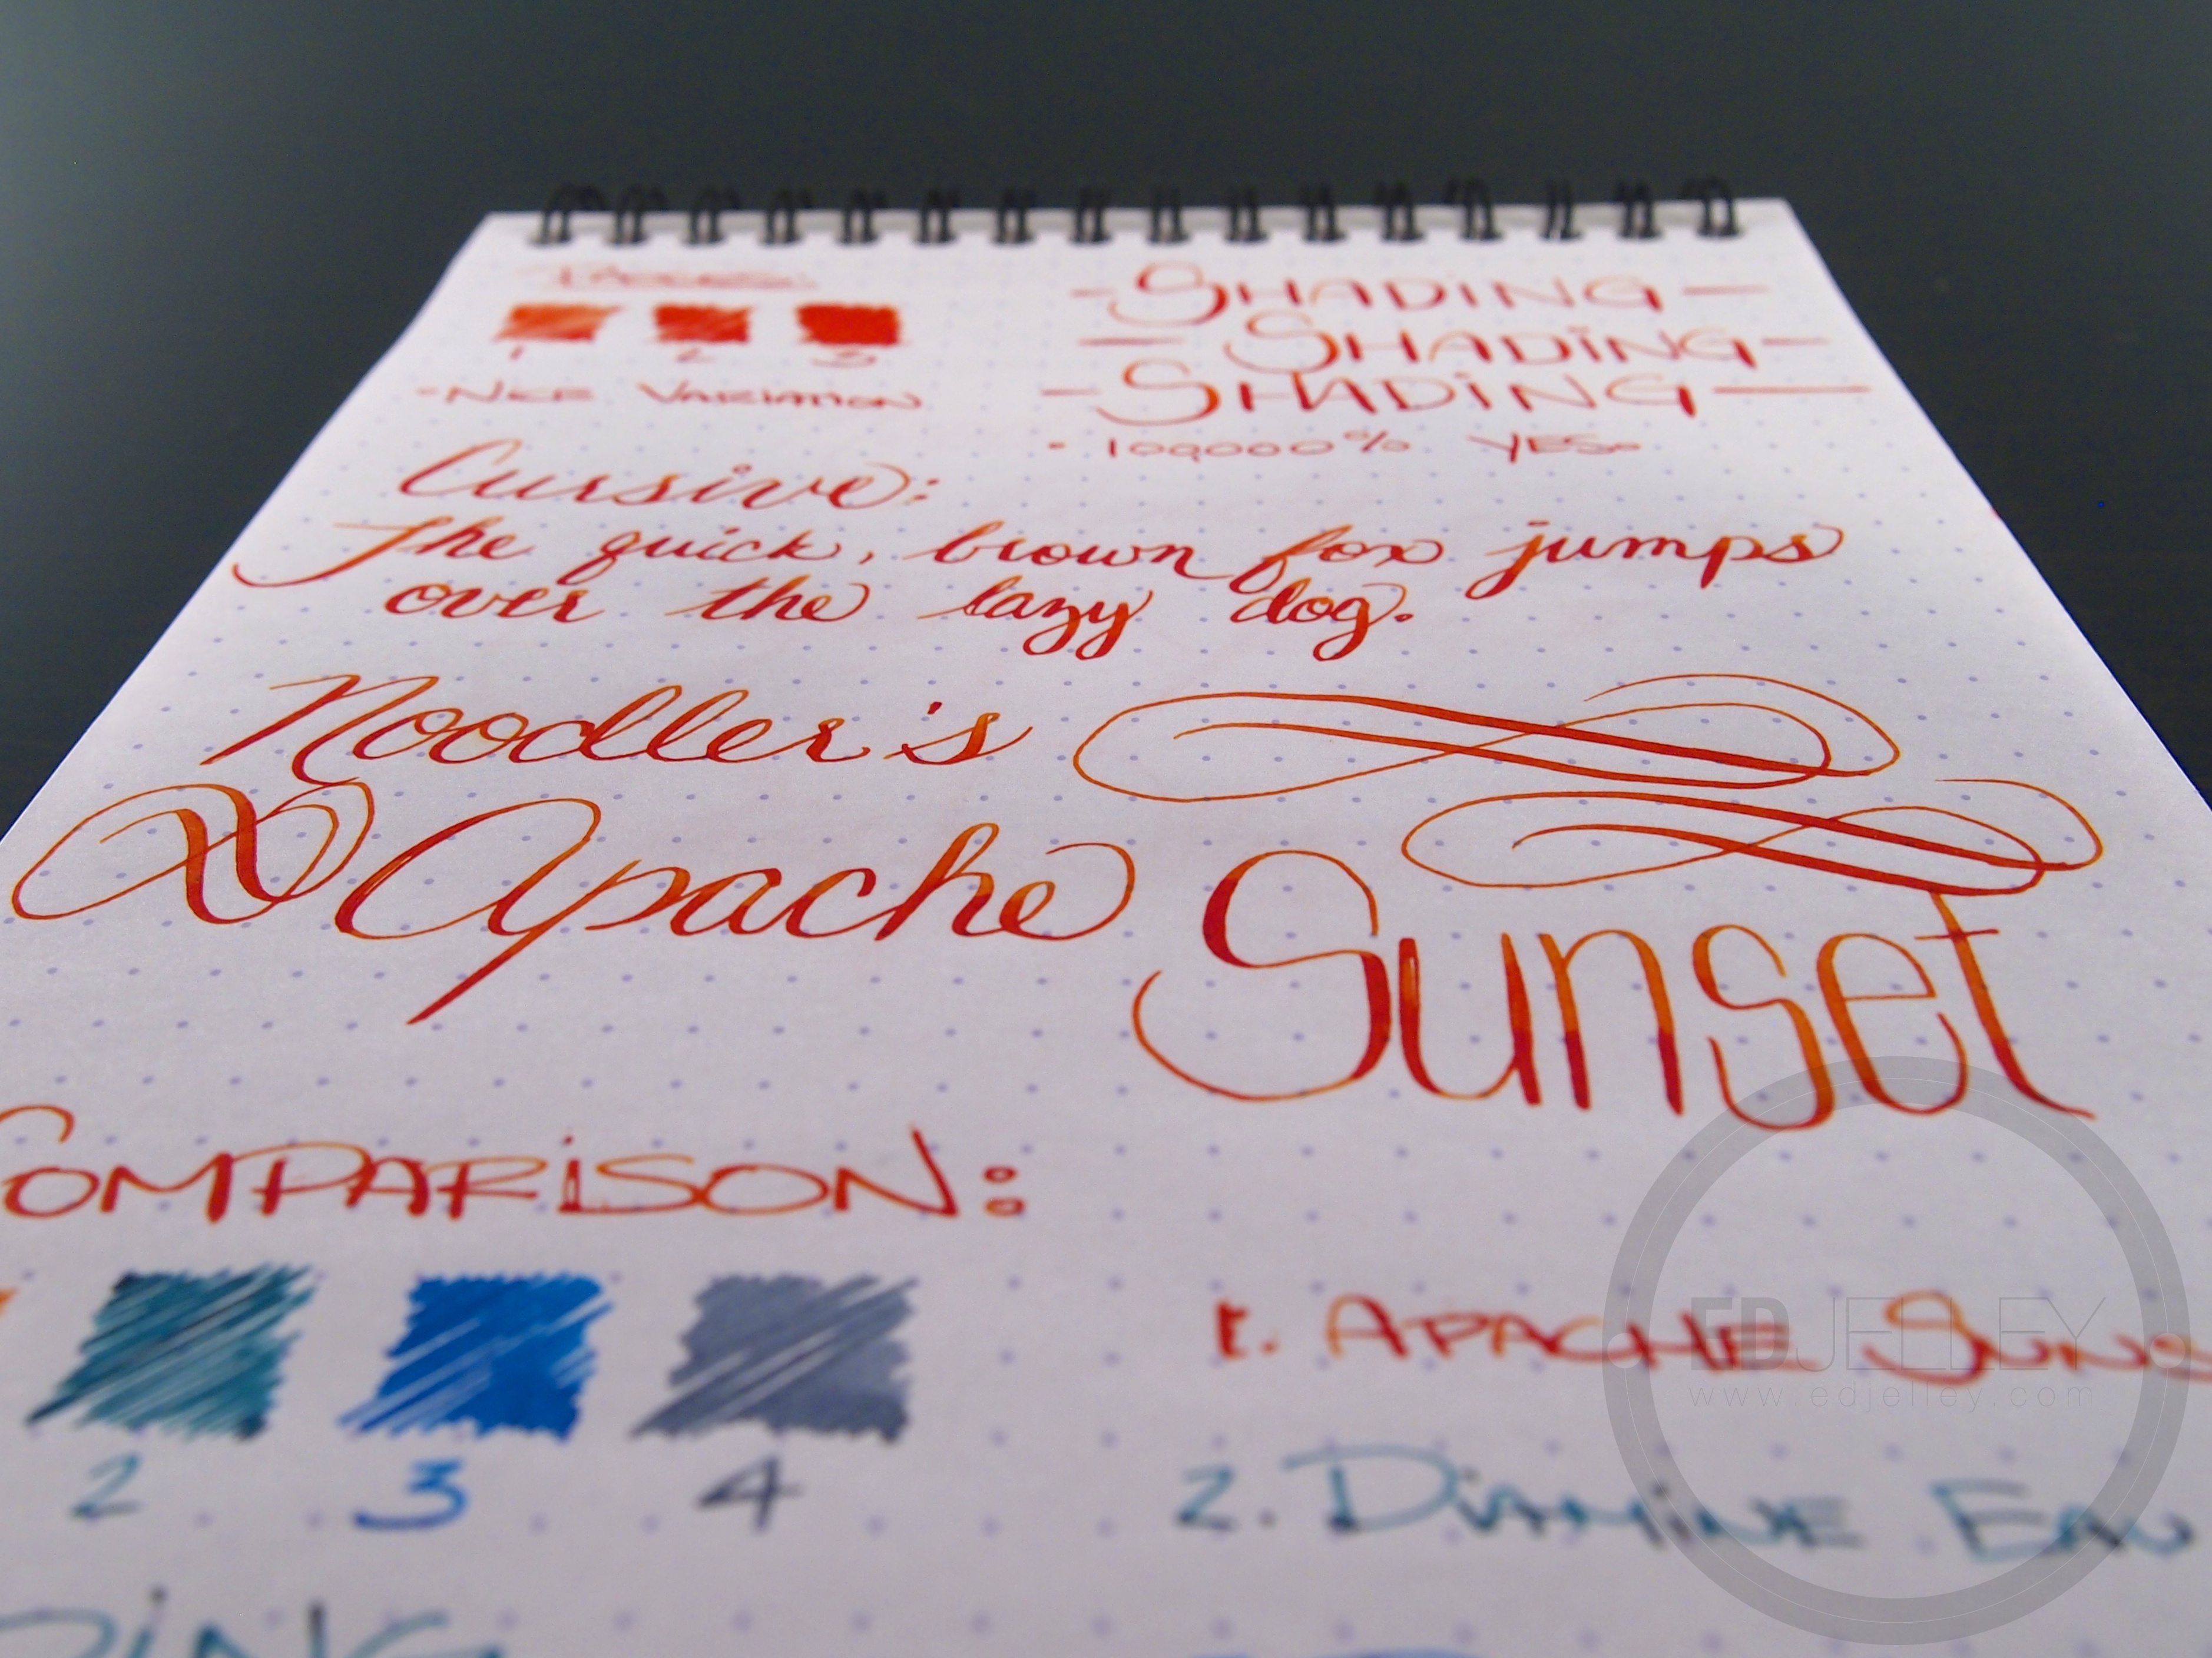 1 2 3
- Nice Variation
- SHADING -
- SHADING -
- SHADING -
- 100,000% YES.
Cursive:
The quick, brown fox jumps
over the lazy dog.
Noodler's
Apache Sunset
COMPARISON:
2 3 4
1. APACHE
2. DIAMINE EAU
EDJELLEY
www.edjelley.com